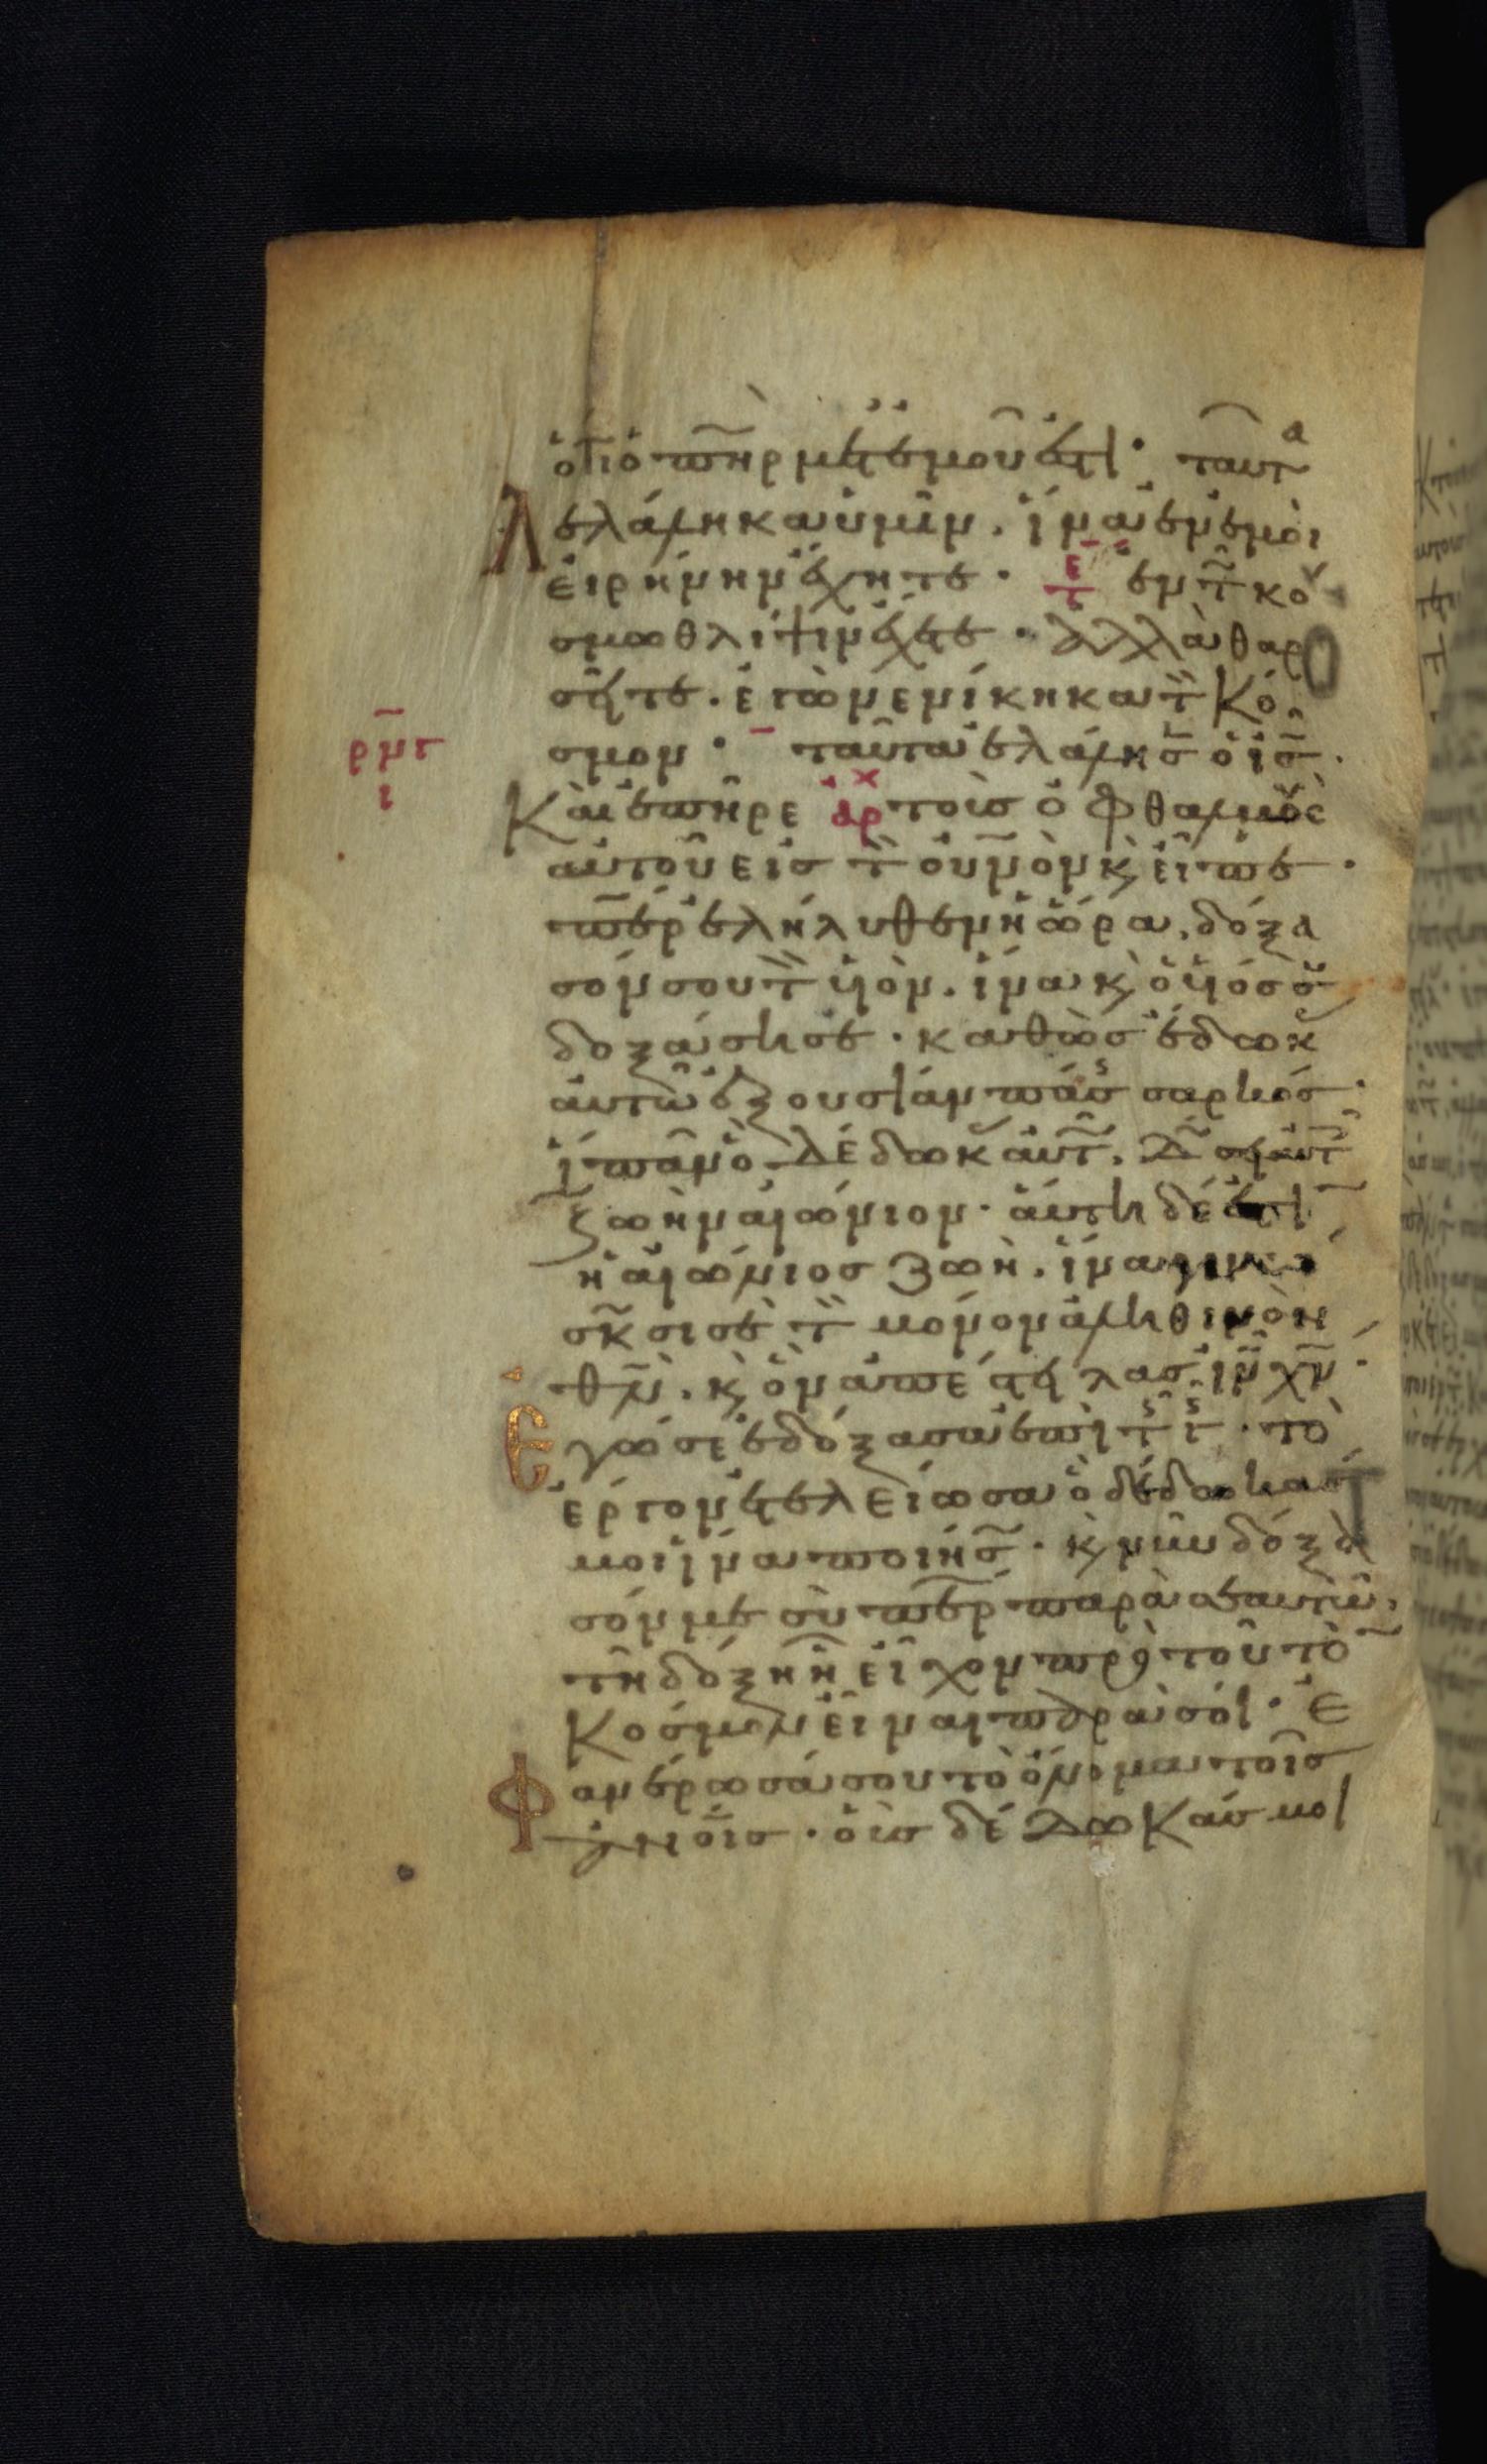 ὅτι ὁ π̅η̅ρ μετ ἐμοῦ ἐστι· ταῦτα
λελάληκα ὑμῖν. ἵνα ἐν ἐμοὶ
εἰρήνην ἔχητε· ἐν τ̅ κό
σμω θλίψιν ἔχετε· ἀλλὰ θαρ
σεῖτε. ἐγὼ νενίκηκα τ̅ κό
ρ̅μ̅γ̅ σμον· ταῦτα ἐλάλησ̅ ὁ ι̅σ̅.
ι
Καὶ ἐπῆρε τοὺσ ὀφθαλμοὺσ
αὐτοῦ εἰσ τ̅ ου̅νὸν κ̀ εἶπε·
π̅ε̅ρ ἐλήλυθεν ἡ ὥρα. δόξα
σόν σου τ̅ υἱόν. ἵνα κ̀ ὁ υἱόσ σου
δοξάση σε· καθὼσ ἔδωκ
αὐτῶ ἐξουσίαν πάσ σαρκόσ·
ἵνα πᾶν ὃ δέδωκ αὐτ̅. δώση αὐτ̅
ζωὴν αἰώνιον· αὕτη δέ ἐστι
ἡ αἰώνιοσ ζωὴ. ἵνα γινώ
σκ̅σι σὲ τ̅ μόνον ἀληθινὸν
θ̅ν̅. κ̀ ὃν ἀπέστειλασ ι̅ν̅ χ̅ν̅·
Ἐγώ σε ἐδόξασα ἐπὶ τ̅ γ̅· τὸ
ἔργον ἐτελείωσα ὃ δέδωκασ
μοι ἵνα ποιήσ̅· κ̀ νῦν δόξα
σόν με σὺ π̅ε̅ρ παρὰ σεαυτῶ.
τῆ δόξη ἧ εἶχον πρὸ τοῦ τὸ̅
κόσμον εἶναι παρὰ σοί· Ἐ
φανέρωσά σου τὸ ὄνομα τοῖσ
α̅ν̅οισ· οὓσ δέδωκάσ μοι